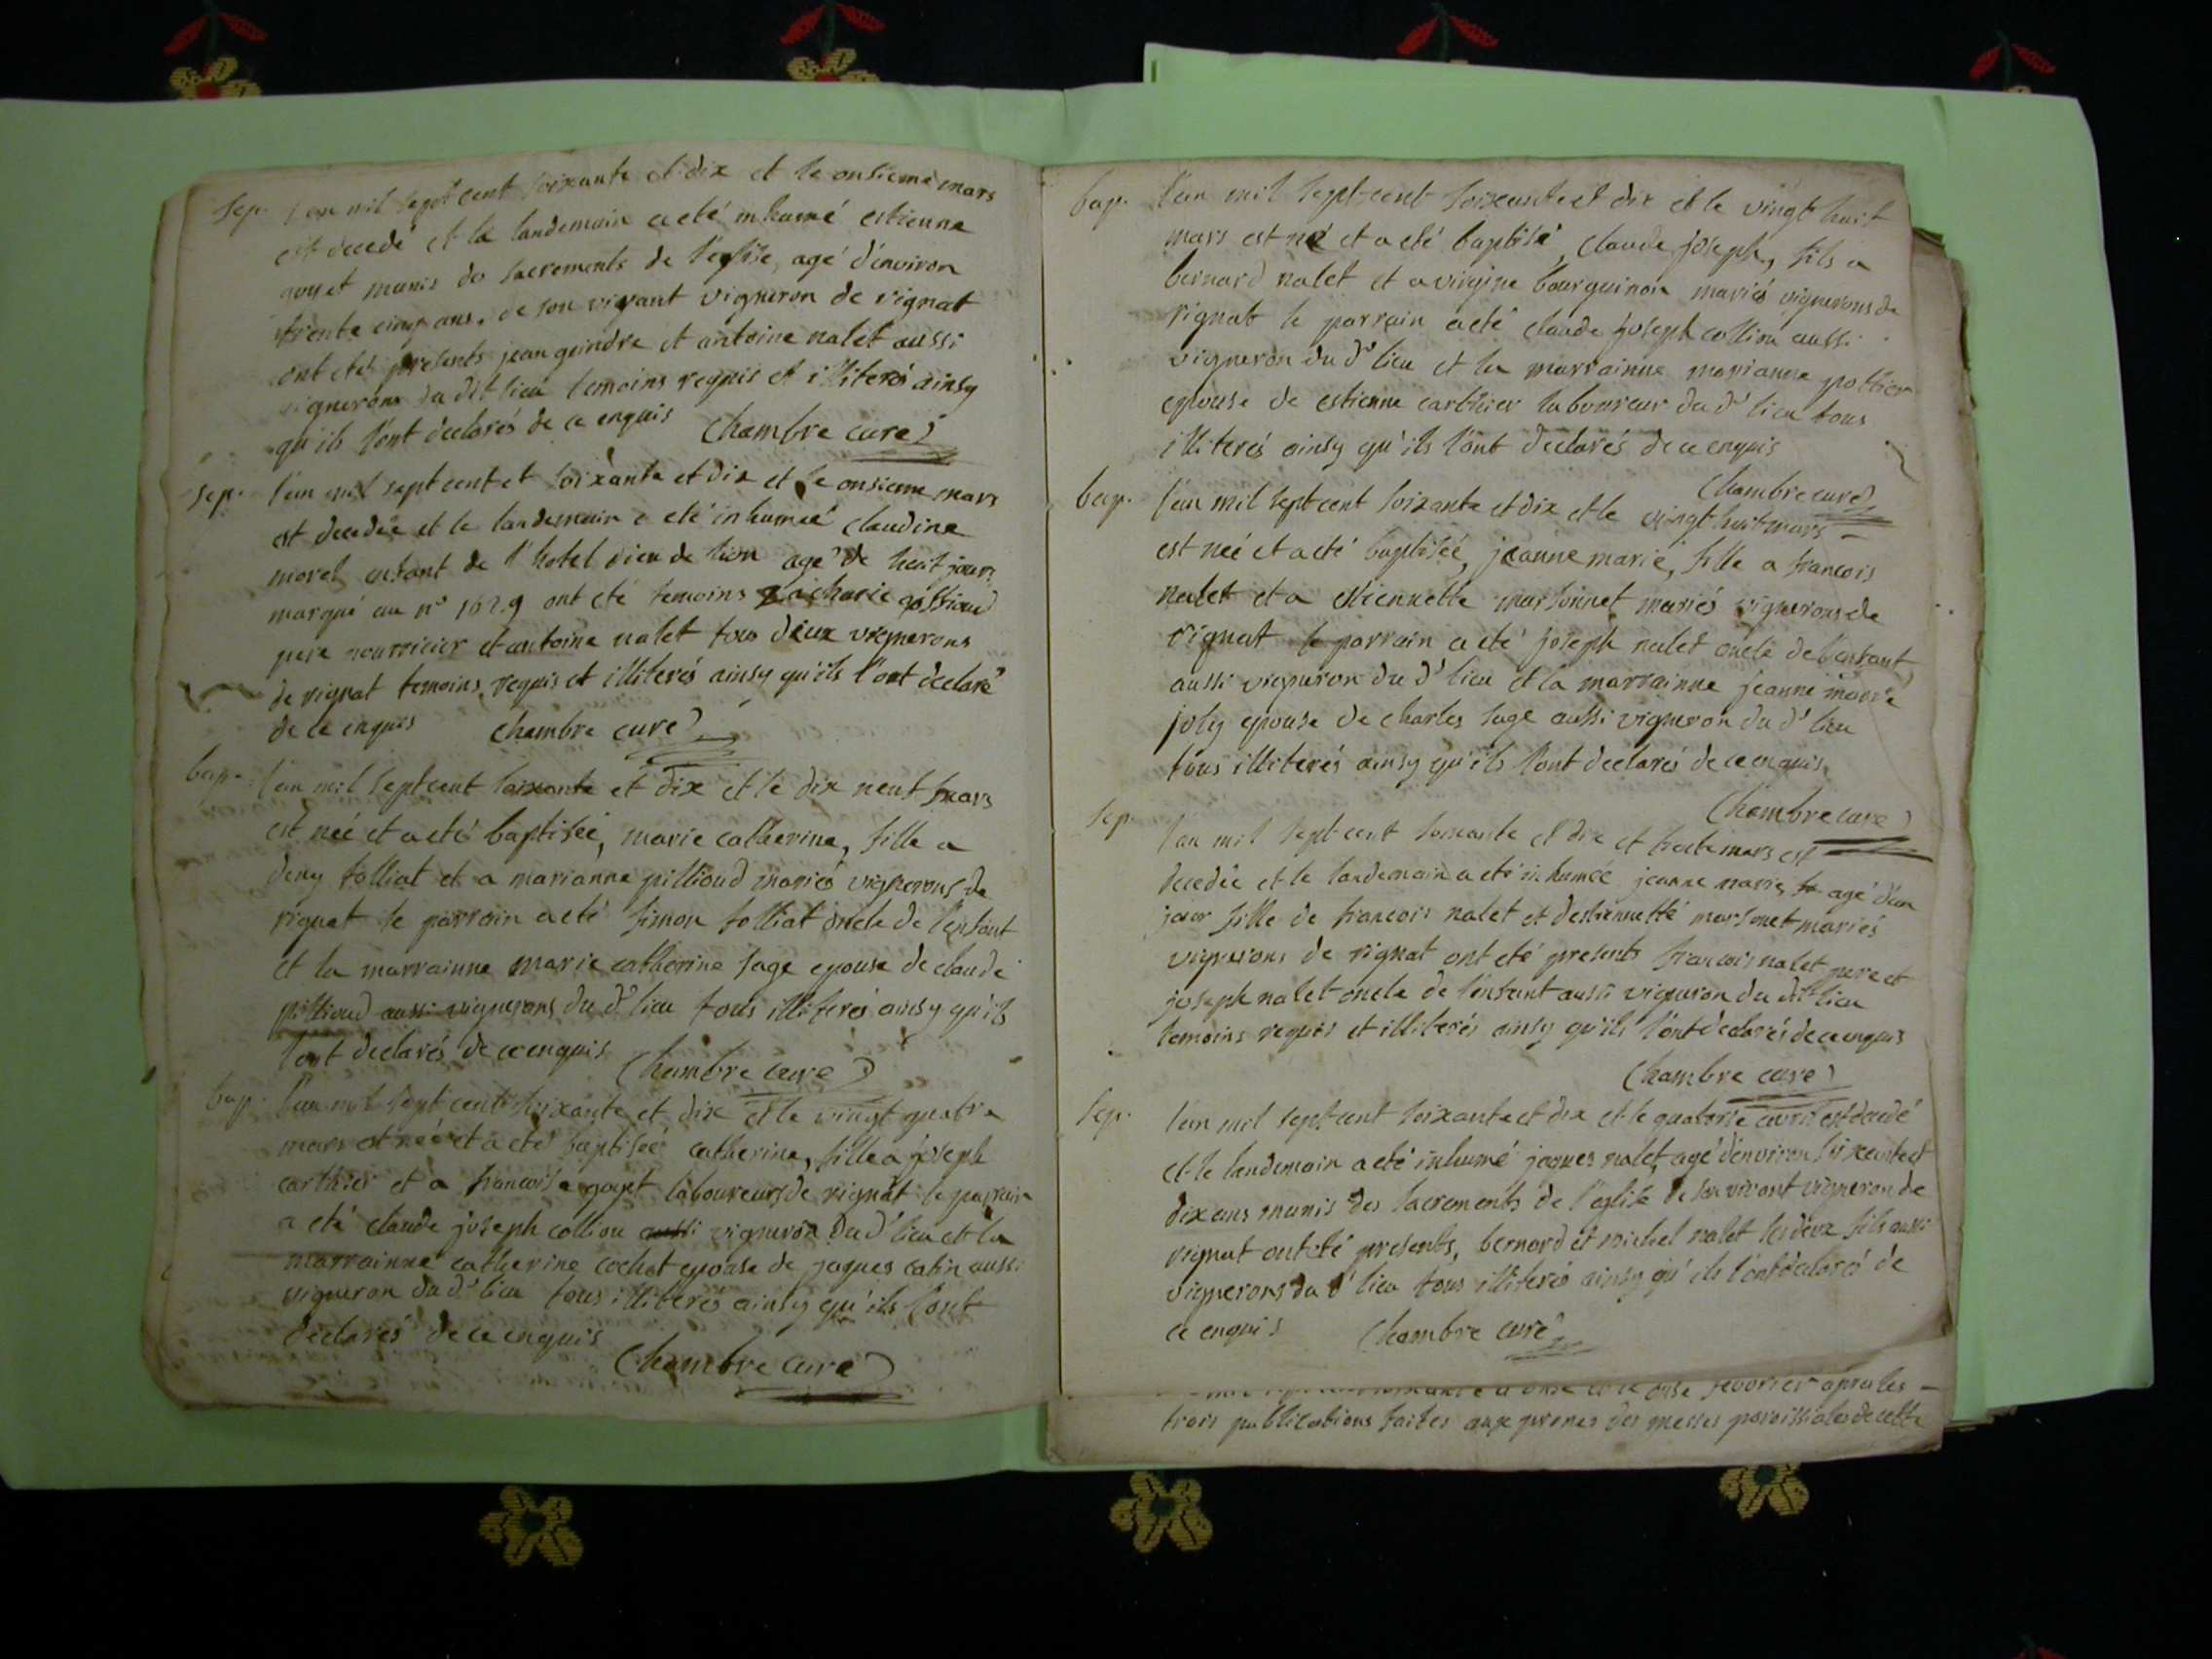 sep. l'an mil sept cent soixante et dix et le onsieme mars
est decedé et le landemain a eté inhumé estienne
goyet munis des sacrements de l'eglise, agé d'environ
trente cinq ans. de son vivant vigneron de rignat
ont etés presents jean geindre et antoine nalet aussi
vignerons du dit lieu temoins requis et illiterés ainsy
qu'ils l'ont declarés de ce enquis Chambre curé
sep. l'an mil sept cent et soixante et dix et le onsieme mars
est decedée et le landemain a eté inhumée claudine
morel enfant de l'hotel dieu de lion agé de heuit jours
marqué au n° 1629 ont eté temoins zacharie
pere nourricier et antoine nalet tous deux vignerons
de rignat temoins requis et illiterés ainsy qu'ils l'ont declaré
de ce enquis Chambre curé
bap. l'an mil sept cent soixante et dix et le dix neuf mars
est née et a eté baptisée, marie catherine, fille a
deny folliat et a marianne pillioud mariés vignerons de
rignat le parrain a eté simon folliat oncle de l'enfant
et la marrainne marie catherine sage epouse de claude
pillioud aussi vignerons du dt lieu tous illiterés ainsy qu'ils
l'ont declarés de ce enquis Chambre curé
bap. l'an mil sept cent soixante et dix et le vingt quatre
mars est née et a eté baptisée catherine, fille a joseph
carthier et a francoise goyet laboureurs de rignat le parrain
a eté claude joseph colliou aussi vigneron du dt lieu et la
marrainne catherine cochet epouse de jaques catin aussi
vigneron du dt lieu tous illiterés ainsy qu'ils l'ont
declarés de ce enquis
Chambre curé
bap. l'an mil sept cent soixante et dix et le vingt huit
mars est né et a eté baptisé, claude joseph, fils a
bernard nalet et a virgine bourguinon mariés vignerons de
rignat le parrain a eté claude joseph colliou aussi
vigneron du dt lieu et la marrainne marianne pothier
epouse de estienne carthier laboureur du dt lieu tous
illiterés ainsy qu'ils l'ont declarés de ce enquis
Chambre curé
bap. l'an mil sept cent soixante et dix et le vingt huit mars
est née et a eté baptisée, jeanne marie, fille a francois
nalet et a estiennette marsonnet mariés vignerons de
rignat le parrain a eté joseph nalet oncle de l'enfant
aussi vigneron du dt lieu et la marrainne jeanne marie
joly epouse de charles sage aussi vigneron du dt lieu
tous illiterés ainsy qu'ils l'ont declarés de ce enquis
Chambre curé
sep. l'an mil sept cent soixante et dix et trente mars est
decedée et le landemain a eté inhumée jeanne marie agé d'un
jour fille de francois nalet et d'estiennette marsonet mariés
vignerons de rignat ont eté presents francois nalet pere et
joseph nalet oncle de l'enfant aussi vigneron du dit lieu
temoins requis et illiterés ainsy qu'ils l'ont declarés de ce enquis
Chambre curé
sep. l'an mil sept cent soixante et dix et le quatorse avril est decedé
et le landemain a eté inhumé jaques nalet, agé d'environ soixante et
dix ans munis des sacrements de l'eglise de son vivant vigneron de
rignat ont eté presents, bernard et michel nalet ses deux fils aussi
vignerons du dt lieu tous illiterés ainsy qu'ils l'ont declarés de
ce enquis Chambre curé
onse fevorier apres les
trois publications faites aux prones des messes paroissiales de cette